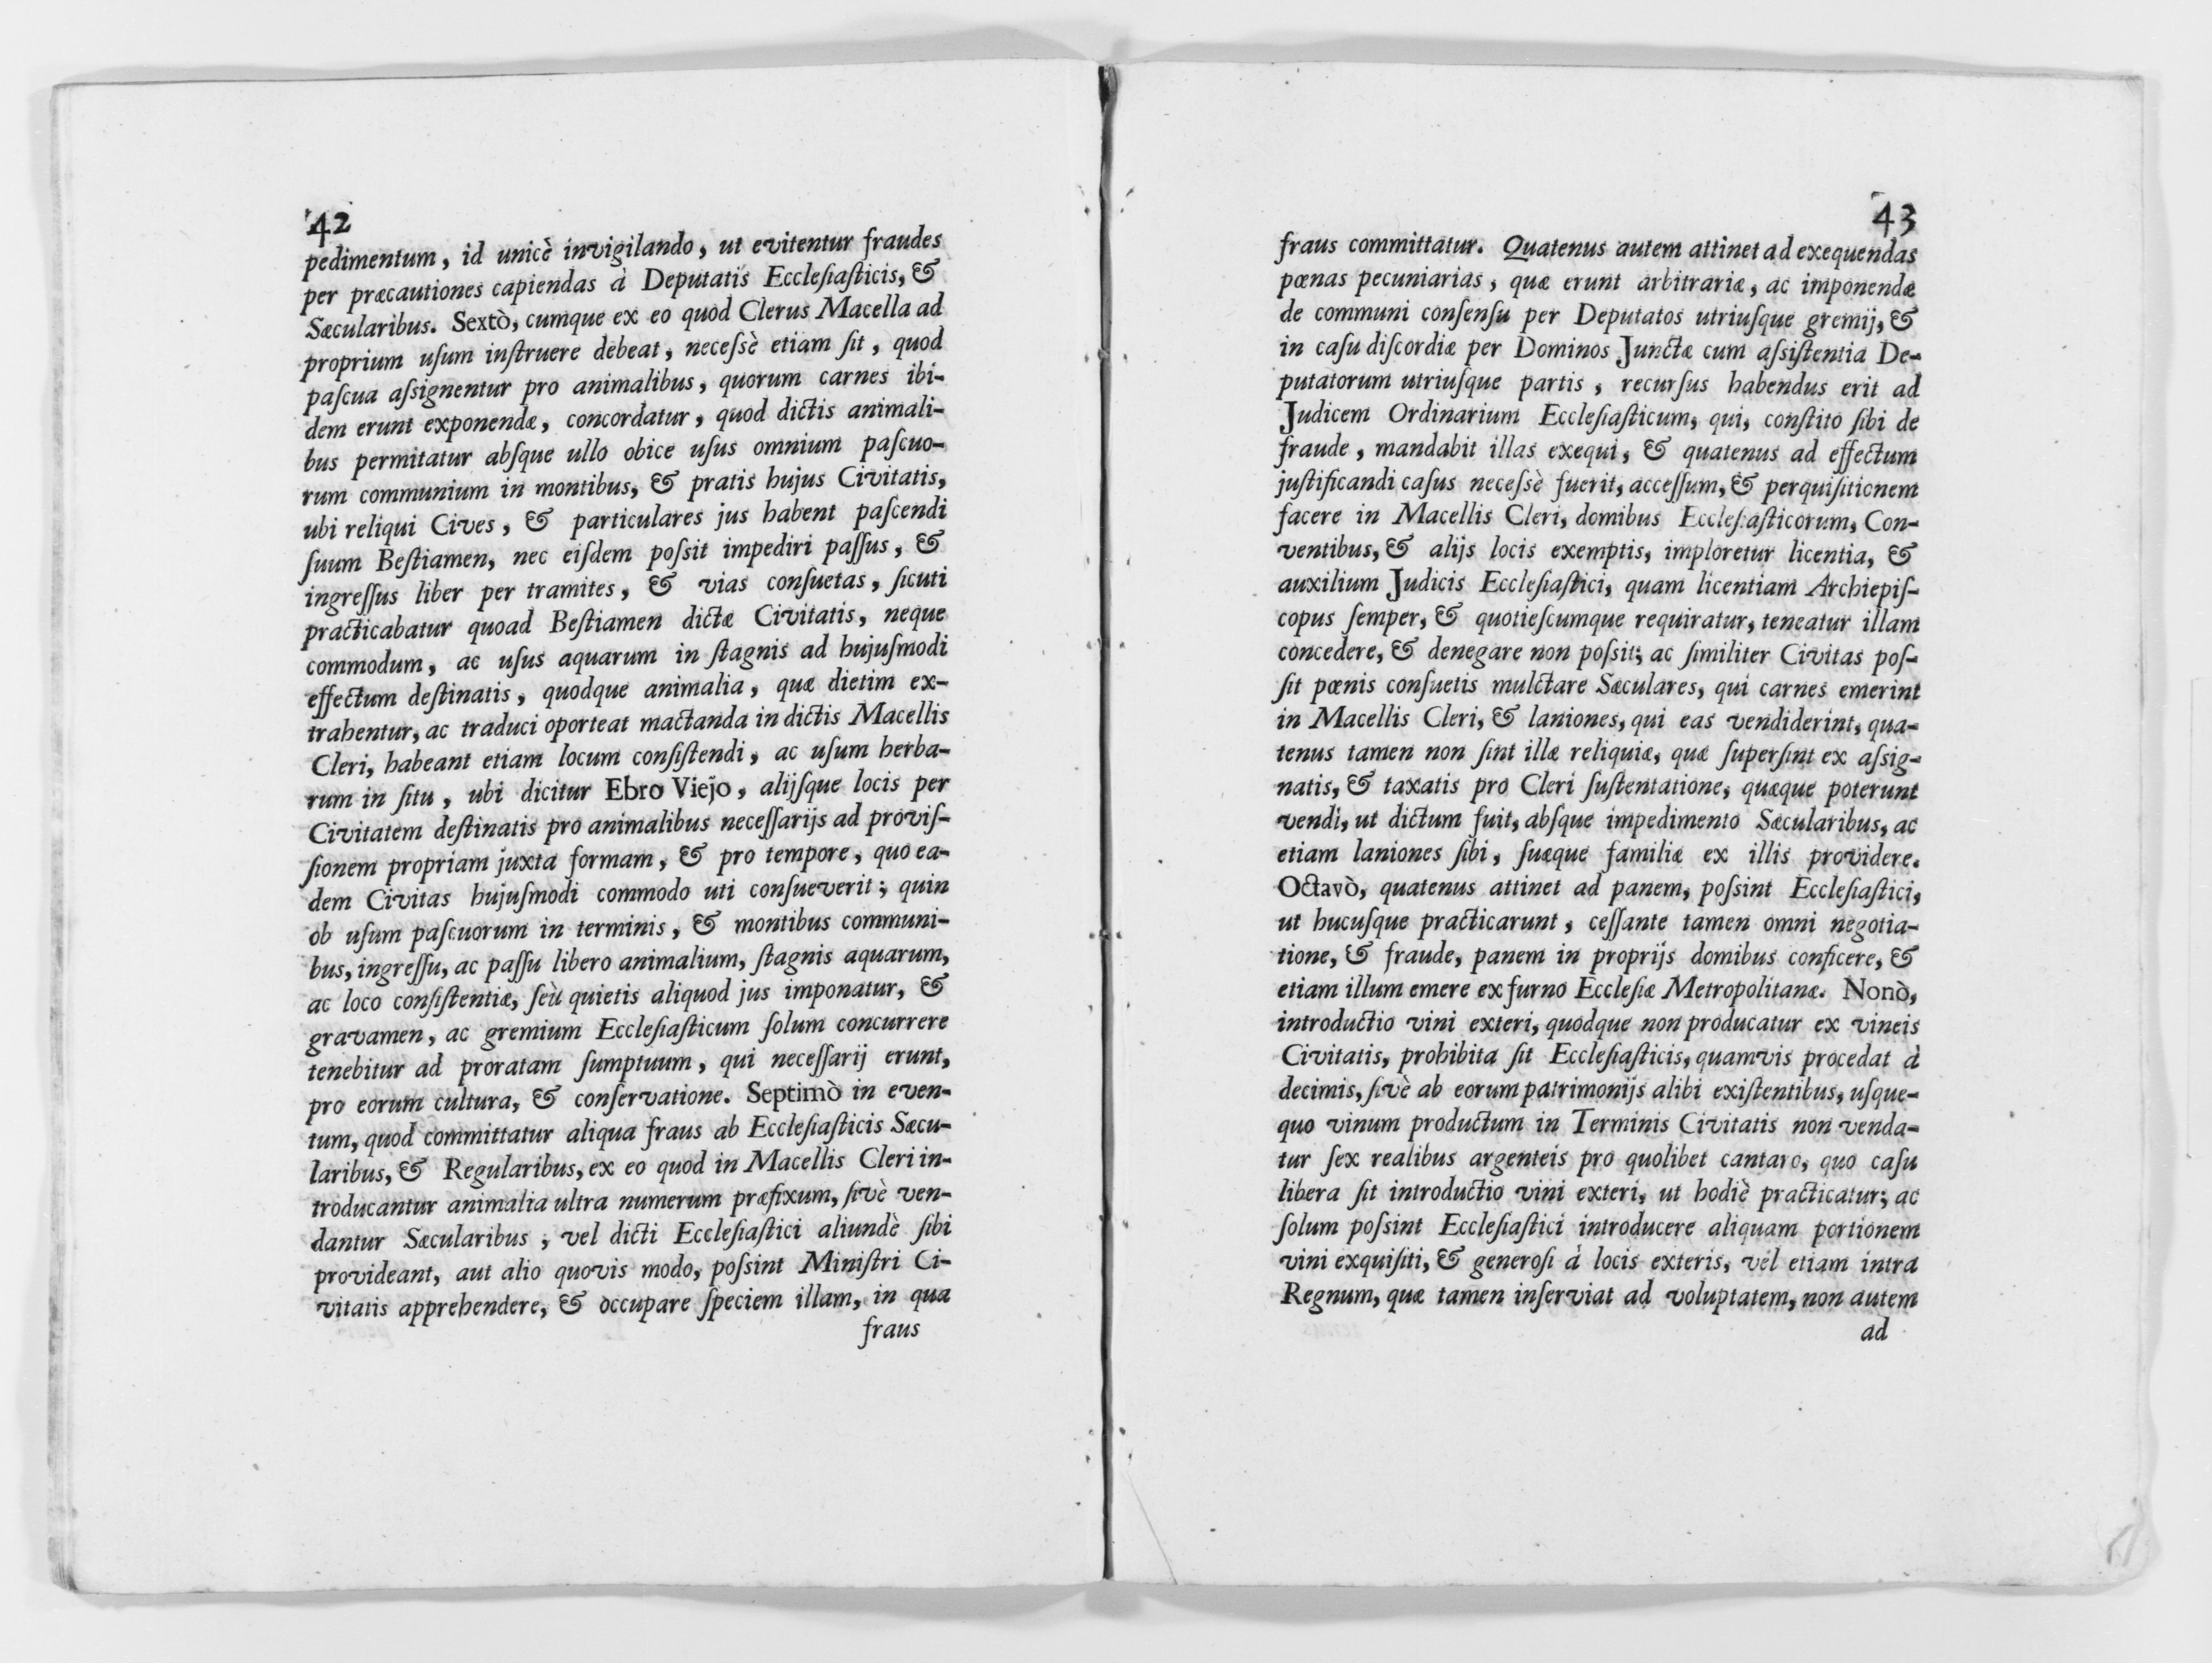 42
pedimentum, id unicè invigilando, ut evitentur fraudes
per præcautiones capiendas à Deputatis Eccleſiaſticis, &
Sæcularibus. Sextò, cumque ex eo quod Clerus Macella ad
proprium uſum inſtruere debeat, neceſsè etiam ſit, quod
paſcua aſsignentur pro animalibus, quorum carnes ibi-
dem erunt exponendæ, concordatur, quod dictis animali-
bus permitatur abſque ullo obice uſus omnium paſcuo-
rum communium in montibus, & pratis hujus Civitatis,
ubi reliqui Cives, & particulares jus habent paſcendi
ſuum Beſtiamen, nec eiſdem poſsit impediri paſſus, &
ingreſſus liber per tramites, & vias conſuetas, ſicuti
practicabatur quoad Beſtiamen dictæ Civitatis, neque
commodum, ac uſus aquarum in ſtagnis ad hujuſmodi
effectum deſtinatis, quodque animalia, quæ dietim ex-
trahentur, ac traduci oporteat mactanda in dictis Macellis
Cleri, habeant etiam locum conſiſtendi, ac uſum herba-
rum in ſitu, ubi dicitur Ebro Viejo, alijſque locis per
Civitatem deſtinatis pro animalibus neceſſarijs ad proviſ-
ſionem propriam juxta formam, & pro tempore, quo ea-
dem Civitas hujuſmodi commodo uti conſueverit; quin
ob uſum paſcuorum in terminis, & montibus communi-
bus, ingreſſu, ac paſſu libero animalium, ſtagnis aquarum,
ac loco conſiſtentiæ, ſeù quietis aliquod jus imponatur, &
gravamen, ac gremium Eccleſiaſticum ſolum concurrere
tenebitur ad proratam ſumptuum, qui neceſſarij erunt,
pro eorum cultura, & conſervatione. Septimò in even-
tum, quod committatur aliqua fraus ab Eccleſiaſticis Sæcu-
laribus, & Regularibus, ex eo quod in Macellis Cleri in-
troducantur animalia ultra numerum præfixum, ſivè ven-
dantur Sæcularibus, vel dicti Eccleſiaſtici aliundè ſibi
provideant, aut alio quovis modo, poſsint Miniſtri Ci-
vitatis apprehendere, & occupare ſpeciem illam, in qua
fraus
43
fraus committatur. Quatenus autem attinet ad exequendas
pœnas pecuniarias, quæ erunt arbitrariæ, ac imponendæ
de communi conſenſu per Deputatos utriuſque gremij, &
in caſu diſcordiæ per Dominos Junctæ cum aſsiſtentia De-
putatorum utriuſque partis, recurſus habendus erit ad
Judicem Ordinarium Eccleſiaſticum, qui, conſtito ſibi de
fraude, mandabit illas exequi, & quatenus ad effectum
juſtificandi caſus neceſsè fuerit, acceſſum, & perquiſitionem
facere in Macellis Cleri, domibus Eccleſiaſticorum, Con-
ventibus, & alijs locis exemptis, imploretur licentia, &
auxilium Judicis Eccleſiaſtici, quam licentiam Archiepiſ-
copus ſemper, & quotieſcumque requiratur, teneatur illam
concedere, & denegare non poſsit; ac ſimiliter Civitas poſ-
ſit pœnis conſuetis mulctare Sæculares, qui carnes emerint
in Macellis Cleri, & laniones, qui eas vendiderint, qua-
tenus tamen non ſint illæ reliquiæ, quæ ſuperſint ex aſsig-
natis, & taxatis pro Cleri ſuſtentatione, quæque poterunt
vendi, ut dictum fuit, abſque impedimento Sæcularibus, ac
etiam laniones ſibi, ſuæque familiæ ex illis providere.
Octavò, quatenus attinet ad panem, poſsint Eccleſiaſtici,
ut hucuſque practicarunt, ceſſante tamen omni negotia-
tione, & fraude, panem in proprijs domibus conficere, &
etiam illum emere ex furno Eccleſiæ Metropolitanæ. Nonò,
introductio vini exteri, quodque non producatur ex vineis
Civitatis, prohibita ſit Eccleſiaſticis, quamvis procedat à
decimis, ſivè ab eorum patrimonijs alibi exiſtentibus, uſque-
quo vinum productum in Terminis Civitatis non venda-
tur ſex realibus argenteis pro quolibet cantaro, quo caſu
libera ſit introductio vini exteri, ut hodiè practicatur; ac
ſolum poſsint Eccleſiaſtici introducere aliquam portionem
vini exquiſiti, & generoſi à locis exteris, vel etiam intra
Regnum, quæ tamen inſerviat ad voluptatem, non autem
ad